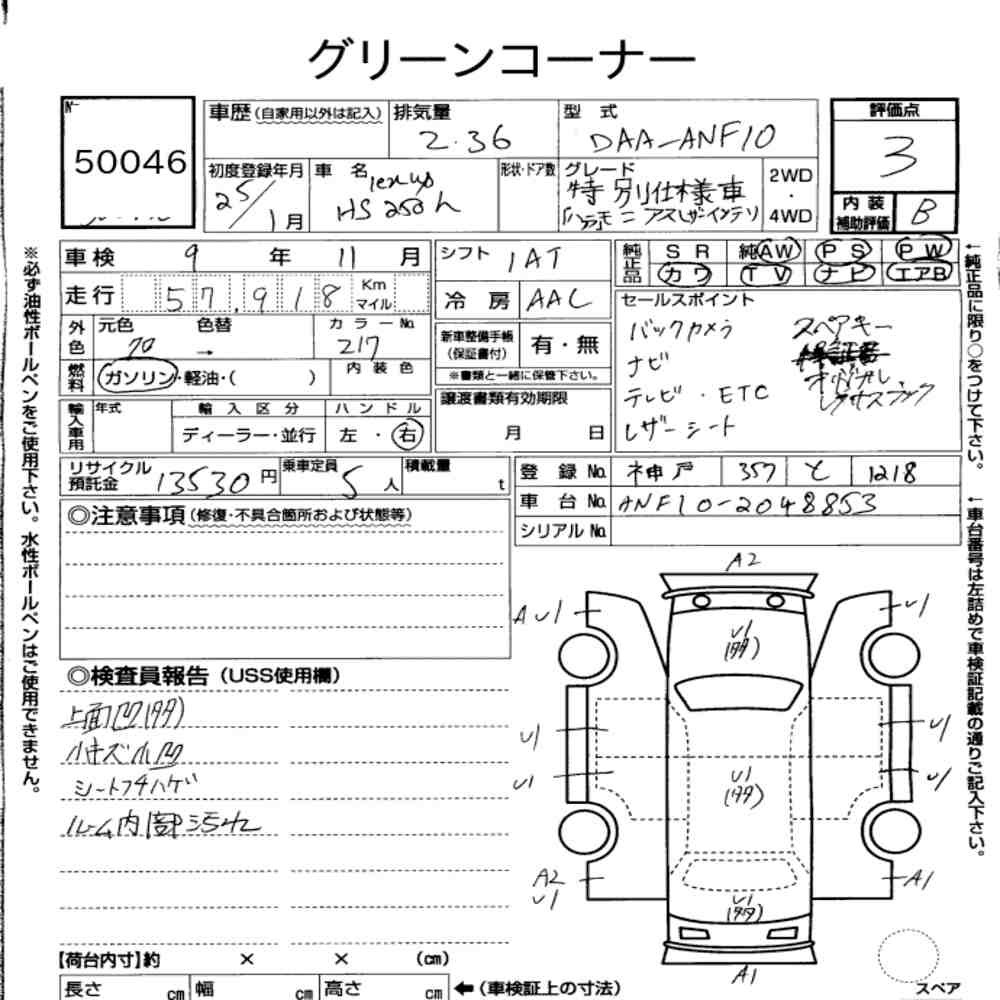 グリーンコーナー
№ 50046
車歴 (自家用以外は記入) 排気量 2.36 型 式 DAA-ANF10
初度登録年月 25/1月 車 名 lexus HS 250h 形状・ドア数 グレード 特別仕様車 2WD・4WD
評価点 3
内装補助評価 B
車検 9 年 11 月 シフト IAT
走行 57,918 Km マイル 冷 房 AAC
純正品 SR 純AW PS PW
カワ TV ナビ エアB
外色 元色 70 色替 → カラーNo. 217
燃料 ガソリン・軽油・( ) 内装色
新車整備手帳(保証書付) 有・無
※書類と一緒に保管下さい。
輸入車用 年式 輸入区分 ディーラー・並行 ハンドル 左・右
譲渡書類有効期限 月 日
セールスポイント
バックカメラ スペアキー
ナビ
テレビ・ETC オリジナル
レザーシート
リサイクル預託金 13530 円 乗車定員 5 人 積載量 t
登 録 No. 神戸 357 と 1218
車 台 No. ANF10-2048853
シリアル No.
◎注意事項 (修復・不具合箇所および状態等)
◎検査員報告 (USS使用欄)
上面凹(多タ)
小キズ小凹
シートフチハゲ
ルーム内部汚れ
A2
A U1 U1
U1
U1 U1
U1 U1
U1
A2 A1
U1
U1
A1
【荷台内寸】約 × × (cm)
長さ cm 幅 cm 高さ cm ← (車検証上の寸法)
スペア
※必ず油性ボールペンをご使用下さい。水性ボールペンはご使用できません。
←純正品に限り○をつけて下さい。
←車台番号は左詰めで車検証記載の通りご記入下さい。